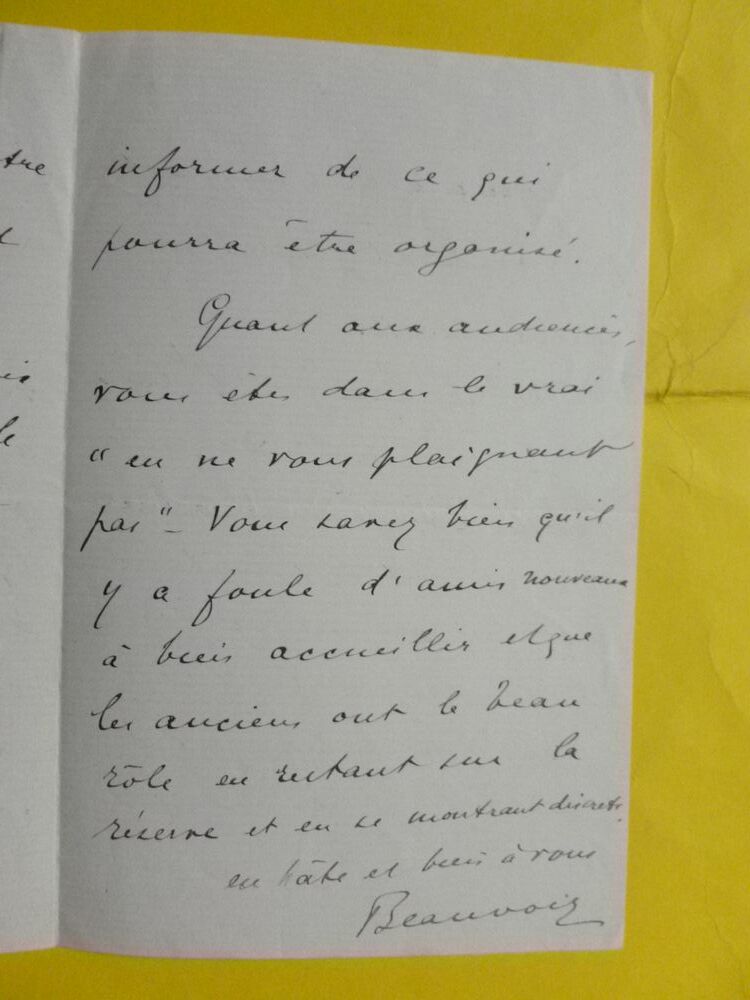 tre
informer de ce qui
pourra être organisé.
Quant aux audiences,
vous êtes dans le vrai
"en ne vous plaignant
pas" - Vous savez bien qu'il
y a foule d'amis nouveaux
à bien accueillir et que
les anciens ont le beau
rôle en restant sur la
réserve et en se montrant discrets.
en hâte et bien à vous
Beauvoir